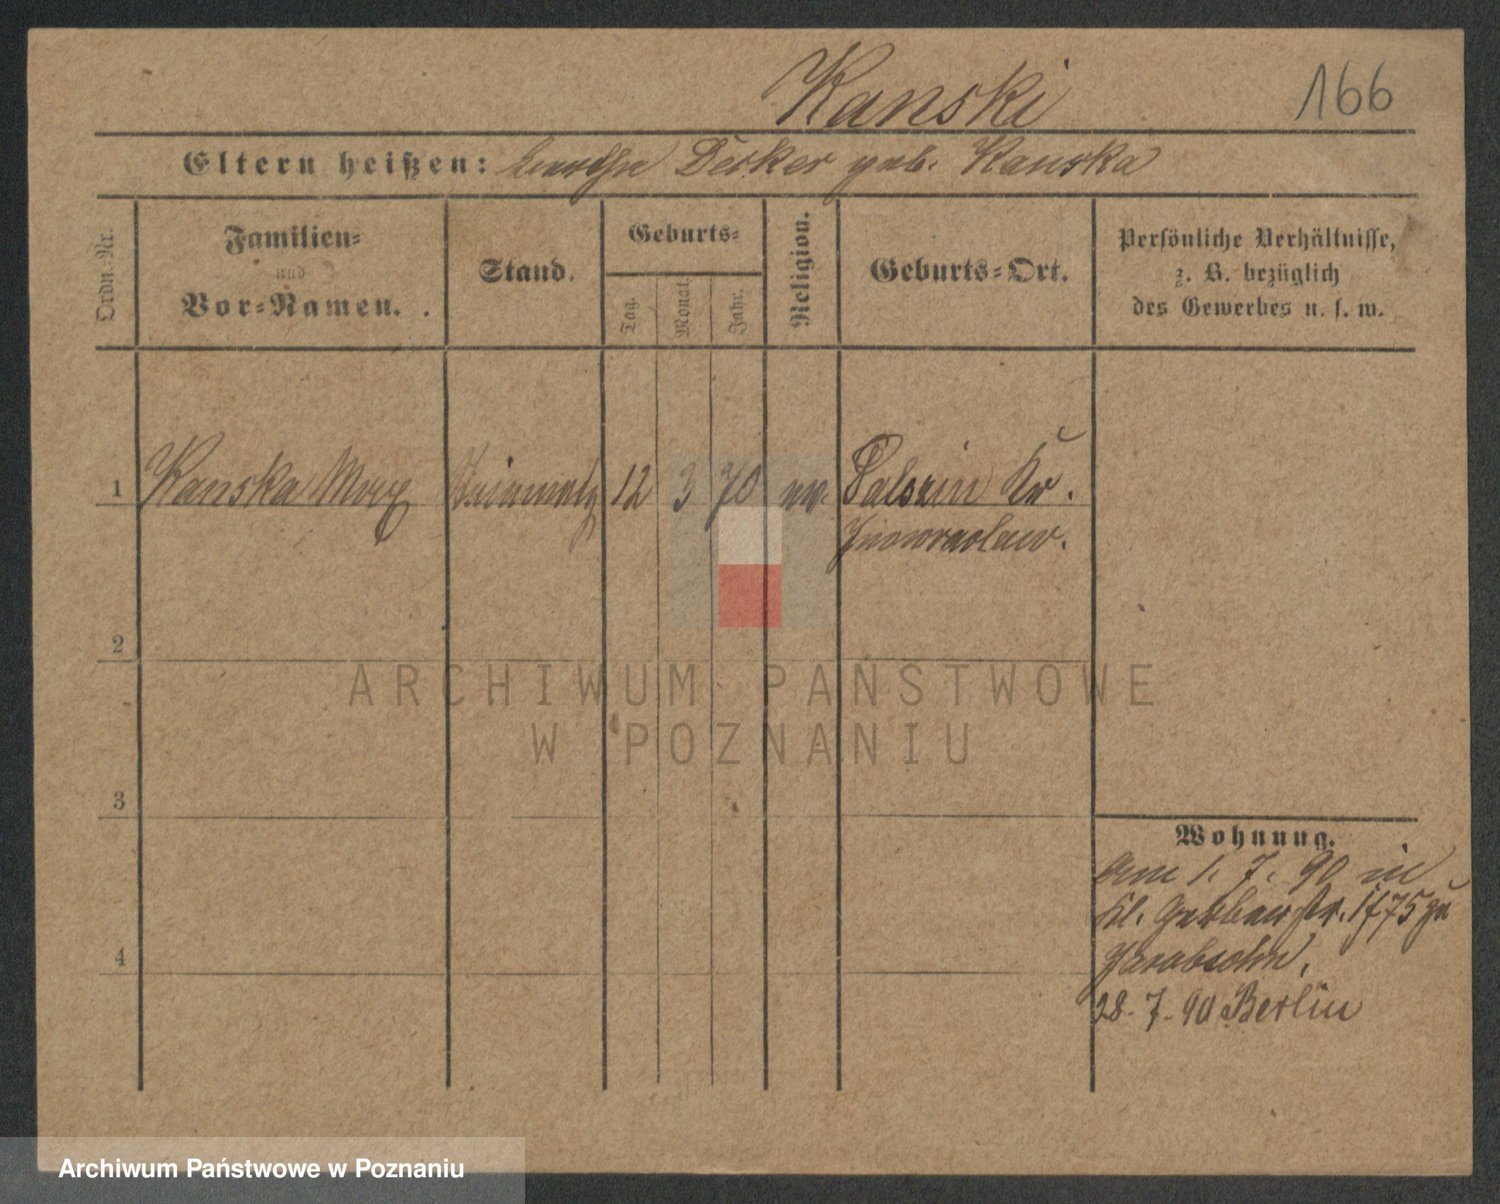 Kanski
166
Eltern heißen: Decker geb. Kanska
Ordn.-Nr.
Familien-
und
Vor-Namen.
Stand.
Geburts-
Tag.
Monat.
Jahr.
Religion.
Geburts-Ort.
Persönliche Verhältnisse,
z. B. bezüglich
des Gewerbes u. s. w.
1 Kanska Max 12 3 70 Kr.
Inowraclaw.
2
3
4
ARCHIWUM PAŃSTWOWE
W POZNANIU
Wohnung.
am 1. 7. 90 in
Kl. Gerberstr. zu
28. 7. 90 Berlin
Archiwum Państwowe w Poznaniu